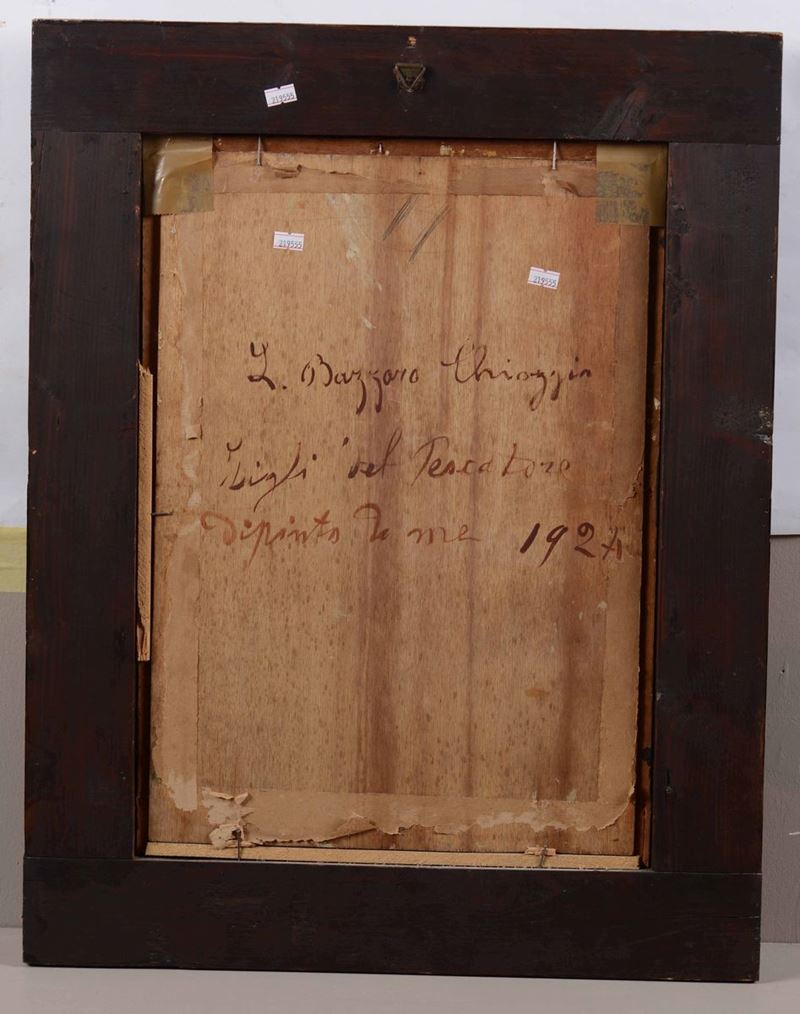 219555
219555
219555
L. Bazzaro Chioggia
Figli del Pescatore
Dipinto da me 1924